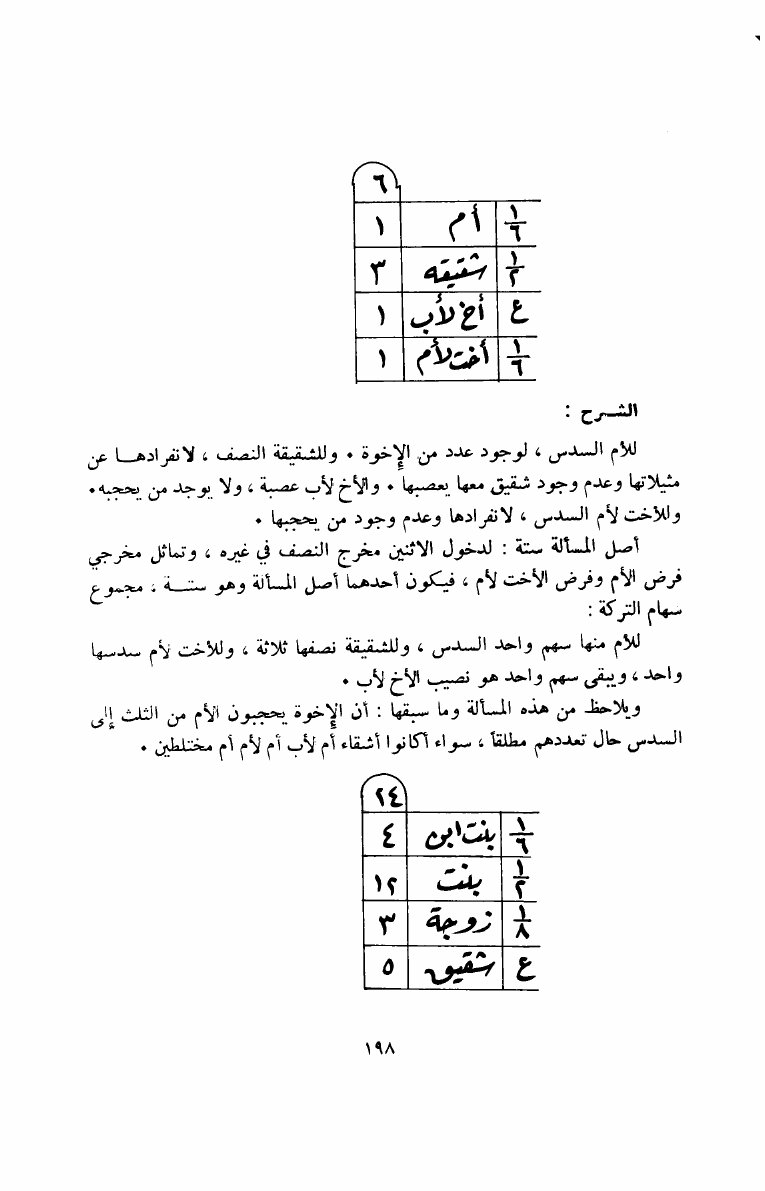 ٦
١/٦ أم ١
١/٢ شقيقه ٣
ع أخ لأب ١
١/٦ أخت لأم ١
الشـرح :
للأم السدس ، لوجود عدد من الإخوة . وللشقيقة النصف ، لانفرادهـا عن
مثيلاتها وعدم وجود شقيق معها يعصبها . والأخ لأب عصبة ، ولا يوجد من يحجبه .
وللأخت لأم السدس ، لانفرادها وعدم وجود من يحجبها .
أصل المسألة ستة : لدخول الاثنين مخرج النصف في غيره ، وتماثل مخرجي
فرض الأم وفرض الأخت لأم ، فيكون أحدهما أصل المسألة وهو ستـة ، مجموع
سهام التركة :
للأم منها سهم واحد السدس ، وللشقيقة نصفها ثلاثة ، وللأخت لأم سدسها
واحد ، ويبقى سهم واحد هو نصيب الأخ لأب .
ويلاحظ من هذه المسألة وما سبقها : أن الإخوة يحجبون الأم من الثلث إلى
السدس حال تعددهم مطلقاً ، سواء أكانوا أشقاء أم لأب أم لأم أم مختلطين .
٢٤
١/٦ بنت ابن ٤
١/٢ بنت ١٢
١/٨ زوجة ٣
ع شقيق ٥
١٩٨